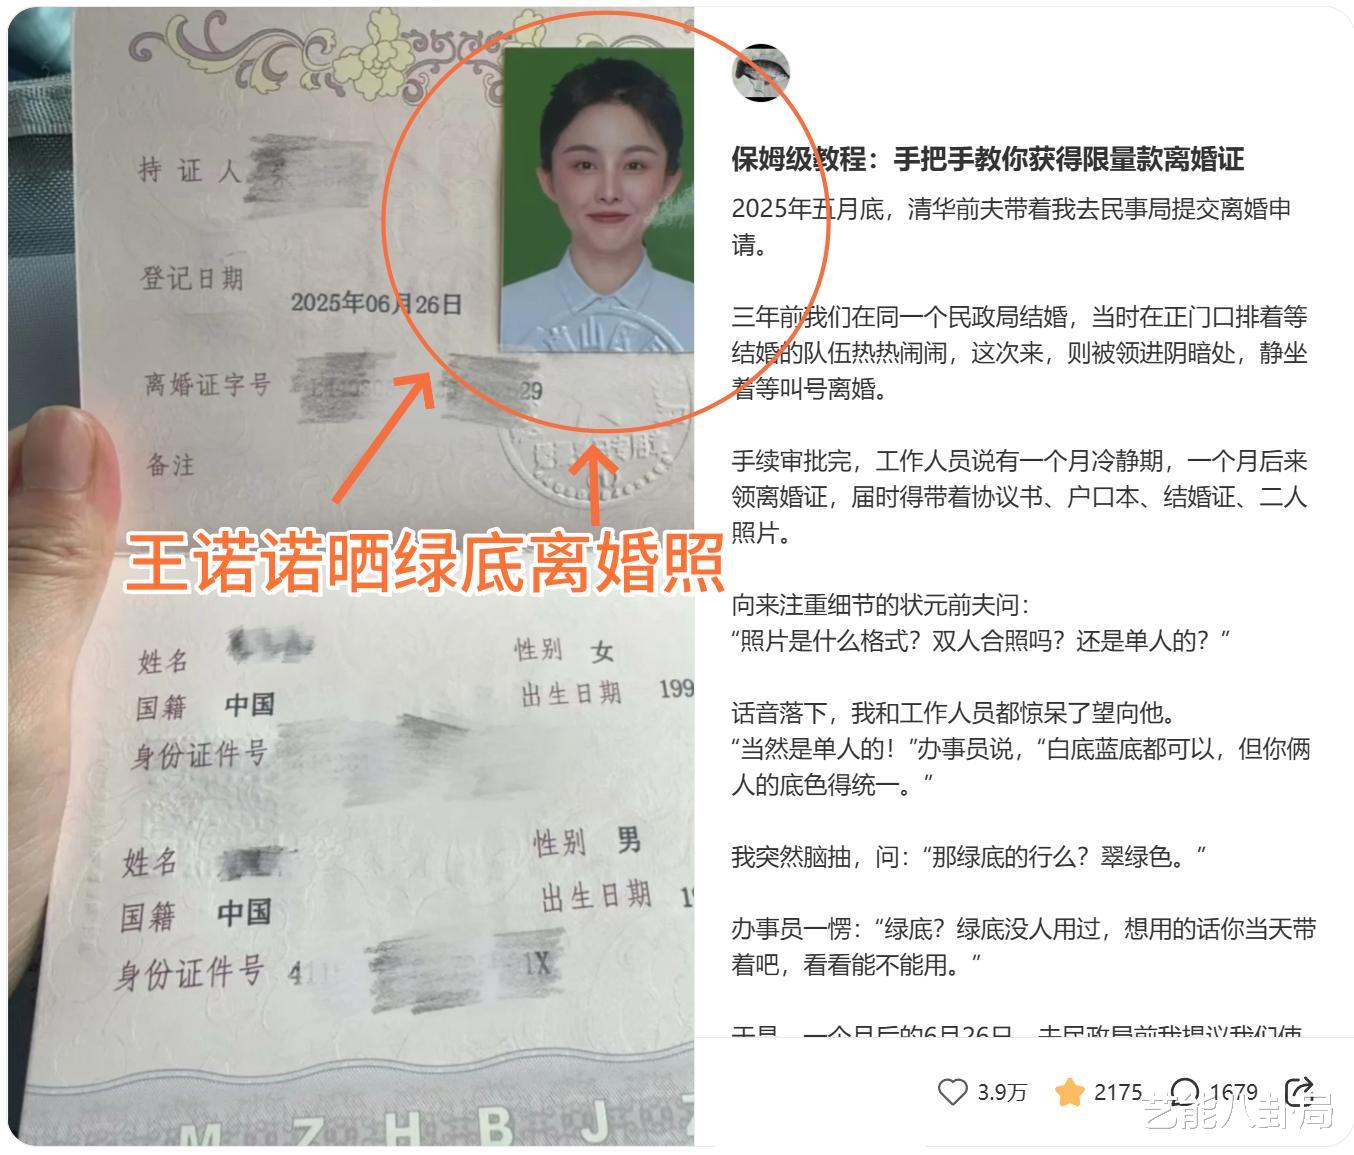 持证人
登记日期
2025年06月26日
离婚证字号
29
备注
王诺诺晒绿底离婚照
姓名
性别 女
国籍 中国
出生日期 199
身份证件号
姓名
性别 男
国籍 中国
出生日期 1
身份证件号 411
1X
M Z H B J Z
保姆级教程：手把手教你获得限量款离婚证
2025年五月底，清华前夫带着我去民事局提交离婚申
请。
三年前我们在同一个民政局结婚，当时在正门口排着等
结婚的队伍热热闹闹，这次来，则被领进阴暗处，静坐
着等叫号离婚。
手续审批完，工作人员说有一个月冷静期，一个月后来
领离婚证，届时得带着协议书、户口本、结婚证、二人
照片。
向来注重细节的状元前夫问：
“照片是什么格式？双人合照吗？还是单人的？”
话音落下，我和工作人员都惊呆了望向他。
“当然是单人的！”办事员说，“白底蓝底都可以，但你俩
人的底色得统一。”
我突然脑抽，问：“那绿底的行么？翠绿色。”
办事员一愣：“绿底？绿底没人用过，想用的话你当天带
着吧，看看能不能用。”
于是，一个月后的6月26日，去民政局前我提议我们使
3.9万 2175 1679
艺能八卦局